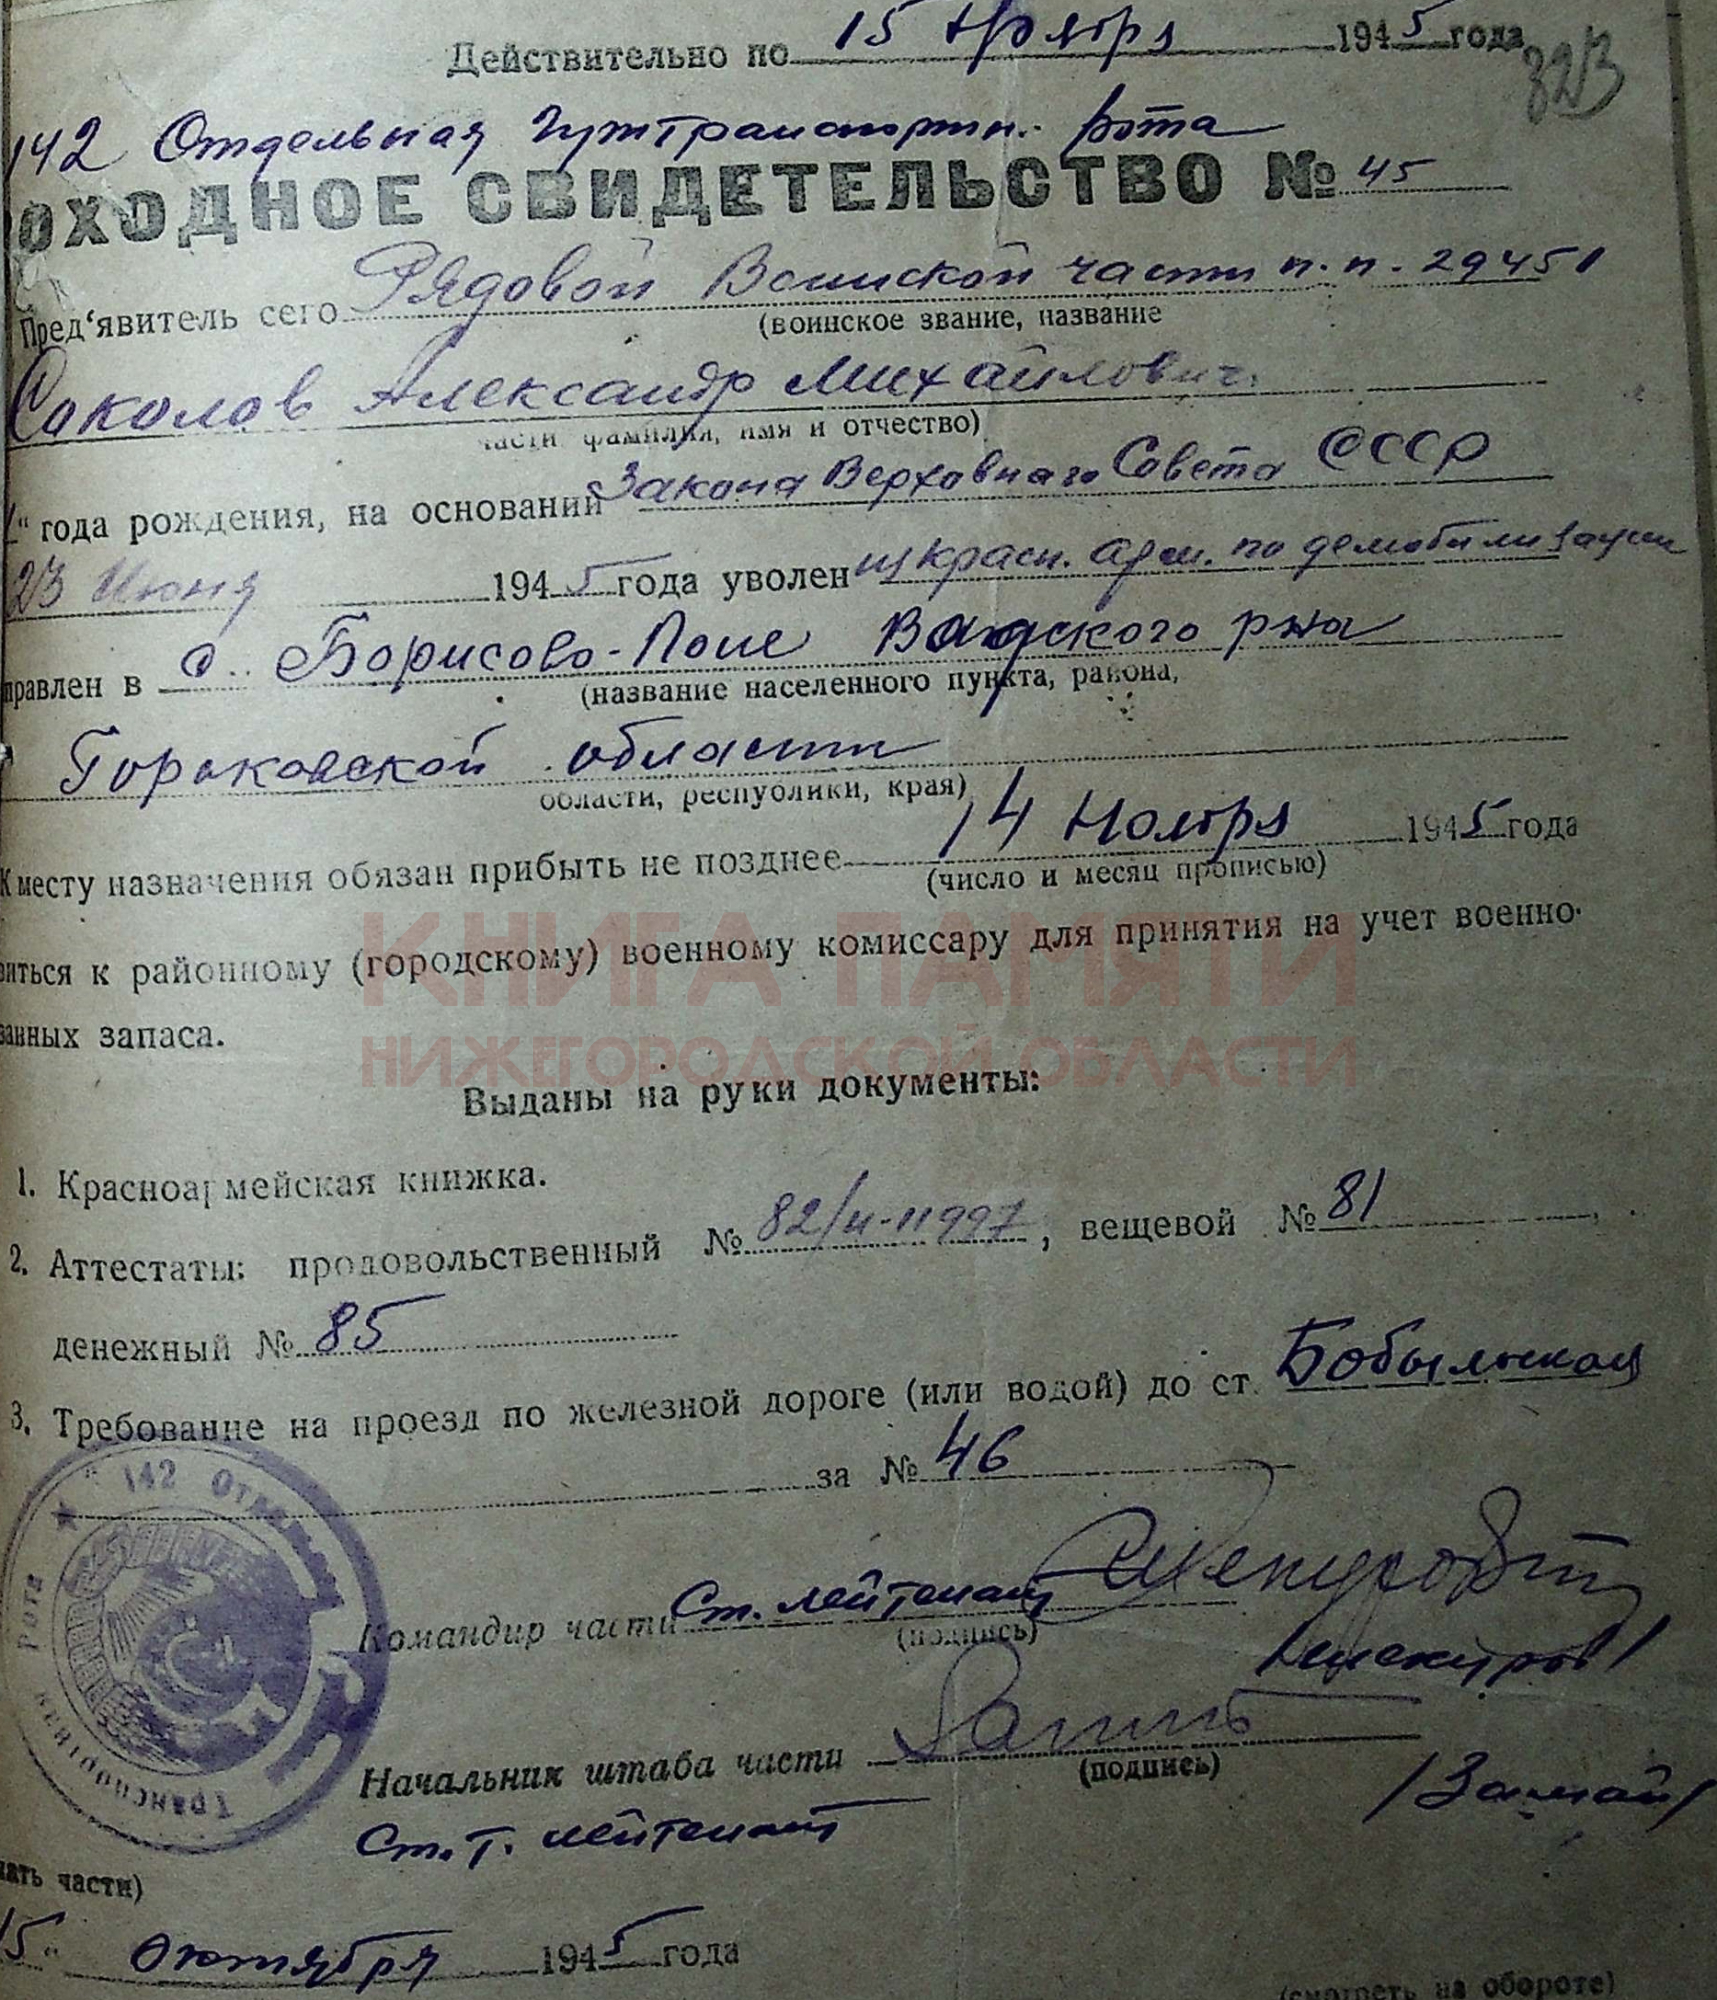 Действительно по 15 Ноября 1945 года
323
142 Отдельная Гужтранспортн. Рота
ОХОДНОЕ СВИДЕТЕЛЬСТВО № 45
Пред‘явитель сего Рядовой Воинской части п.п. 29451
(воинское звание, название
Соколов Александр Михайлович
части фамилия, имя и отчество)
“ года рождения, на основании Закона Верховного Совета СССР
23 Июня 1945 года уволен из красн. арм. по демобилизации
правлен в с. Борисово-Поле Вадского р-на
(название населенного пункта, района,
Горьковской области
области, республики, края)
К месту назначения обязан прибыть не позднее 14 Ноября 1945 года
(число и месяц прописью)
виться к районному (городскому) военному комиссару для принятия на учет военно-
занных запаса.
КНИГА ПАМЯТИ
НИЖЕГОРОДСКОЙ ОБЛАСТИ
Выданы на руки документы:
1. Красноармейская книжка.
2. Аттестаты: продовольственный № 82/и-11997, вещевой № 81,
денежный № 85
3. Требование на проезд по железной дороге (или водой) до ст. Бобыльская
за № 46
142 Отдельн
Транспортная Рота
Командир части Ст. лейтенант
(подпись)
Начальник штаба части
(подпись)
Ст. Т. лейтенант
чать части)
15 “ Октября 1945 года
(смотреть на обороте)